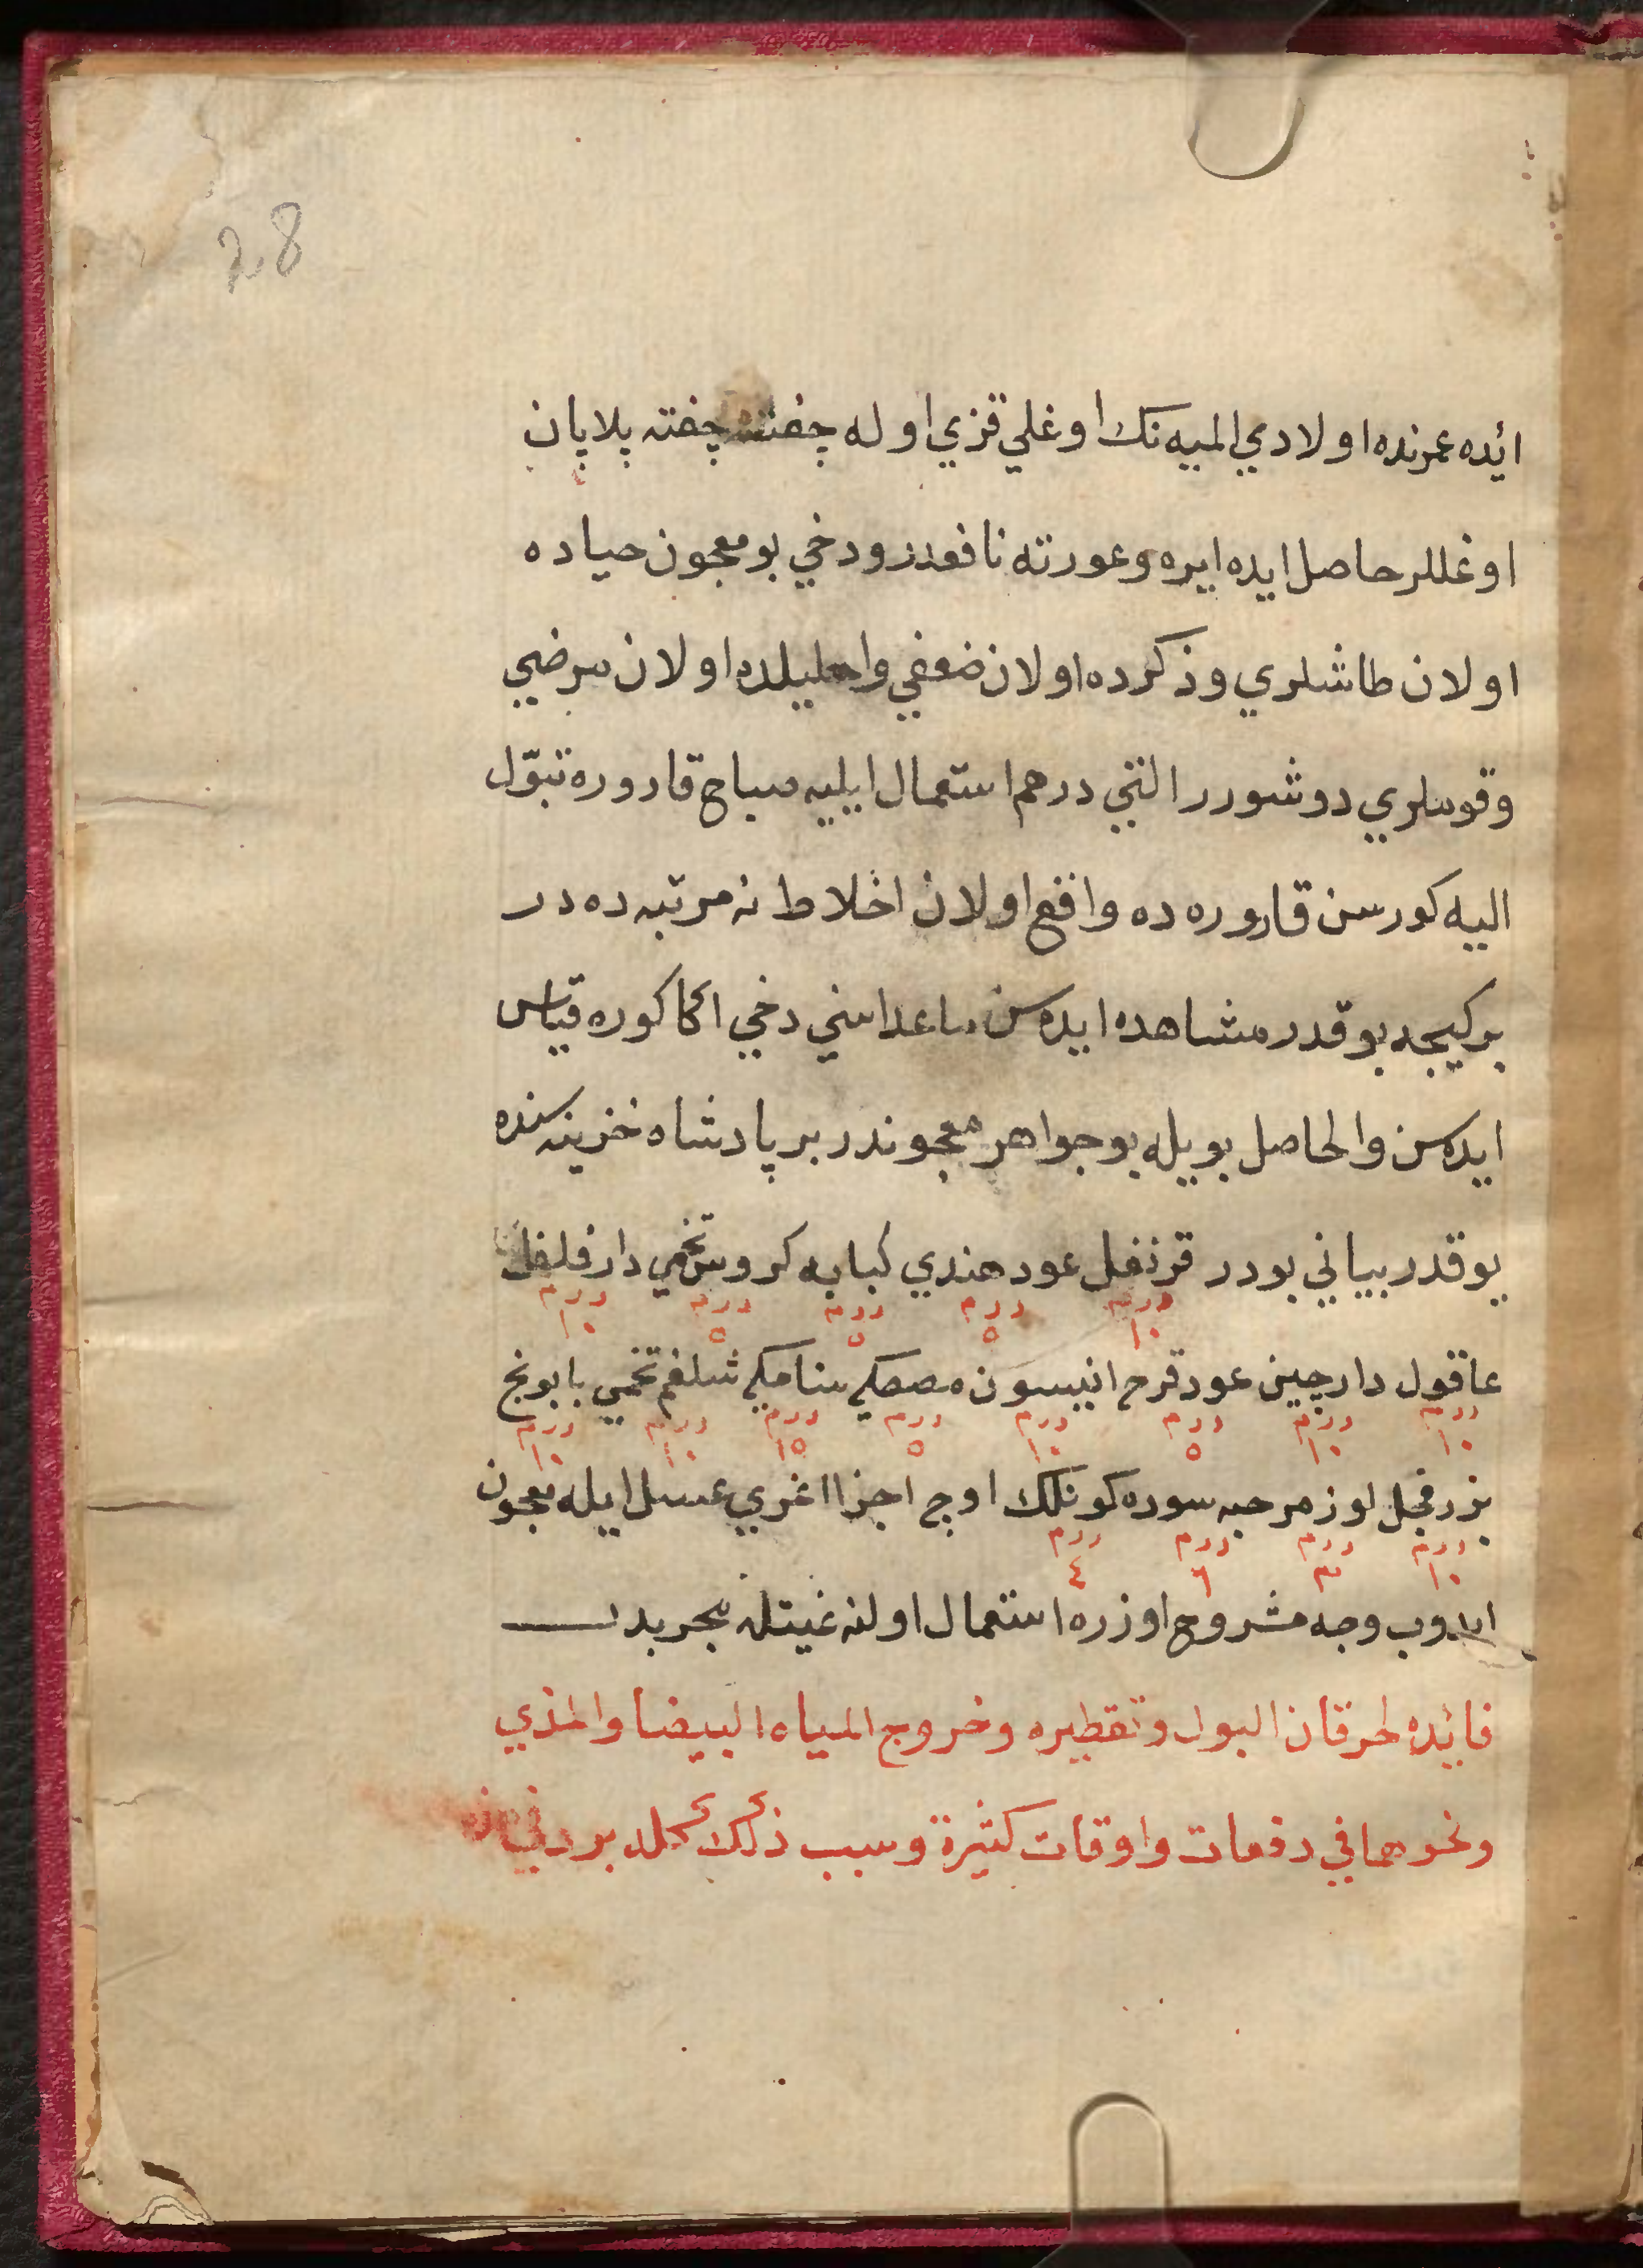 28
ائده عمرنده اولادي المیه نك اوغلي قزي اوله چفته چفته پلاپان
اوغللر حاصل ايده ايره وعورته نافعدر ودخي بو معجون حياده
اولان طاشلري وذكرده اولان ضعفي واحليلده اولان مرضي
وقوملري دوشورر التي درهم استعمال ايليه صباح قاروره تبوّل
اليه كورسن قاروره ده واقع اولان اخلاط نه مرتبه ده در
بركيجه بوقدر مشاهده ايدهسن ماعداسني دخي اكا كوره قياس
ايدهسن والحاصل بويله بو جواهر معجوندر بر پادشاه خزينهسنده
يوقدر بياني بودر قرنفل عود هندي كبابه كروس تخمي دارفلفل
درم ١٠ درم ٥ درم ٥ درم ٥ درم ١٠
عاقول دارچين عودقرح انيسون مصطكي سنامكي شلغم تخمي بابونج
درم ١٠ درم ١٠ درم ٥ درم ١٠ درم ٥ درم ١٥ درم ١٠ درم ١٠
بزر فجل لوز مر حبه سوده كونلك اوچ اجزا اغري عسل ايله معجون
درم ١٠ درم ٣ درم ٦ درم ٤
ايدوب وجه مشروح اوزره استعمال اولنه غيتله مجربدر
فائده لحرقان البول وتقطيره وخروج المياه البيضا والمذي
ونحوهما في دفعات واوقات كثيرة وسبب ذلك كله برد في